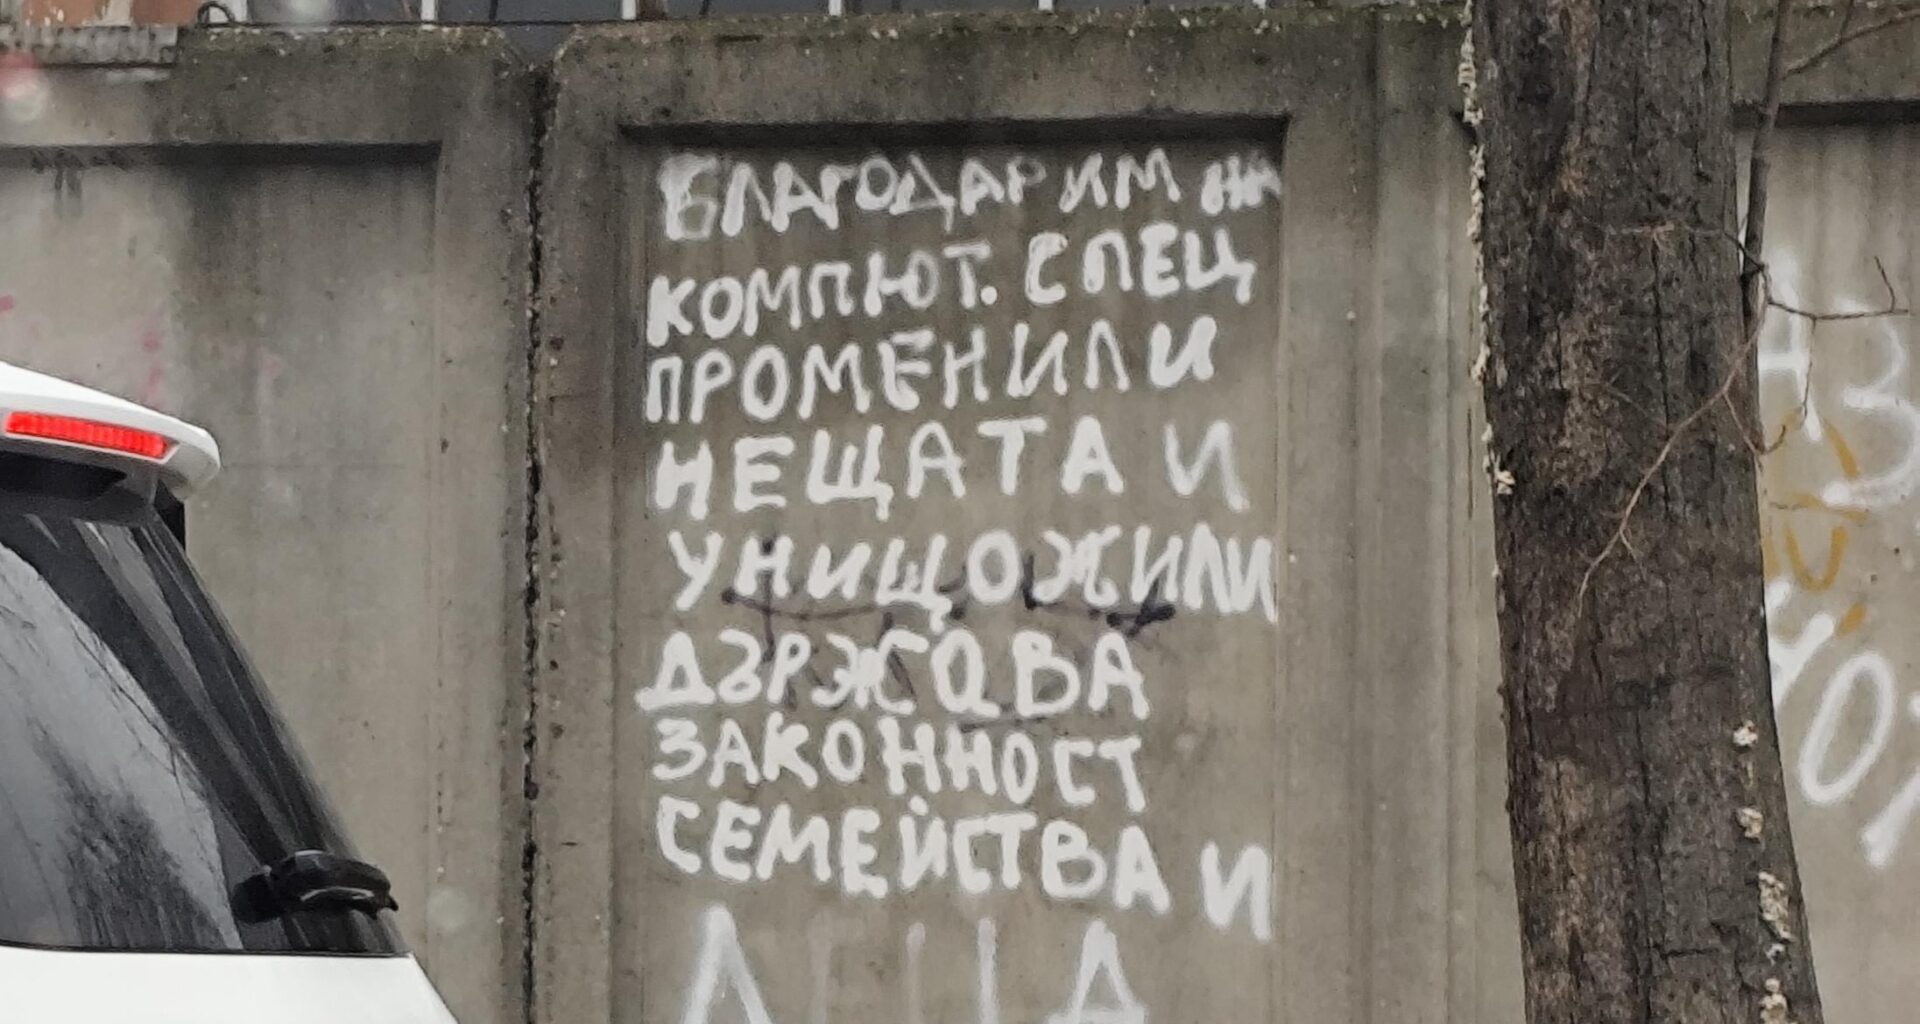 БЛАГОДАРИМ НА
КОМПЮТ. СПЕЦ
ПРОМЕНИЛИ
НЕЩАТА И
УНИЩОЖИЛИ
ДЪРЖАВА
ЗАКОННОСТ
СЕМЕЙСТВА И